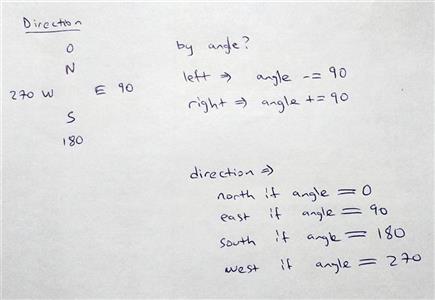 Direction
0
N
270 W E 90
S
180
by angle?
left => angle -= 90
right => angle += 90
direction =>
north if angle == 0
east if angle == 90
south if angle == 180
west if angle == 270